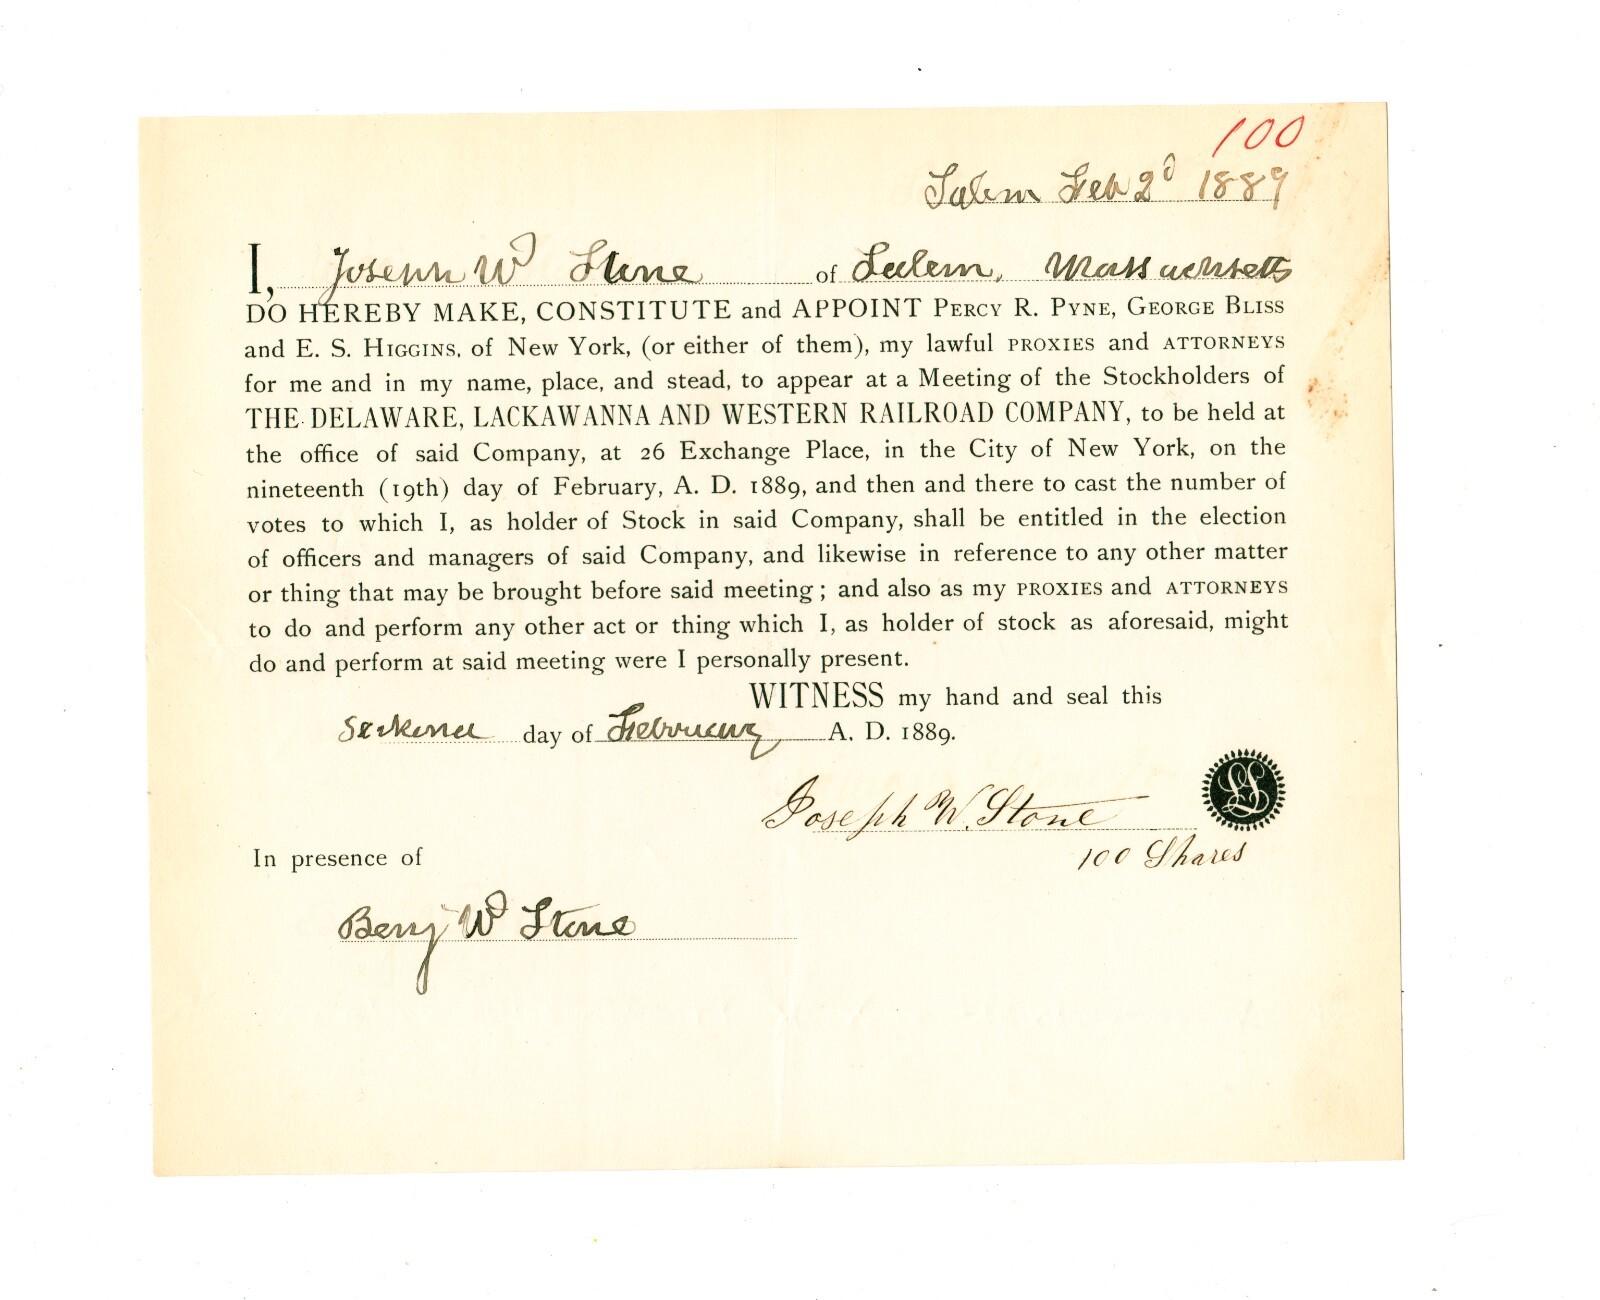 100
Salem Feb 2d 1889
I, Joseph W Stone of Salem, Massachusetts
DO HEREBY MAKE, CONSTITUTE and APPOINT PERCY R. PYNE, GEORGE BLISS
and E. S. HIGGINS, of New York, (or either of them), my lawful PROXIES and ATTORNEYS
for me and in my name, place, and stead, to appear at a Meeting of the Stockholders of
THE DELAWARE, LACKAWANNA AND WESTERN RAILROAD COMPANY, to be held at
the office of said Company, at 26 Exchange Place, in the City of New York, on the
nineteenth (19th) day of February, A. D. 1889, and then and there to cast the number of
votes to which I, as holder of Stock in said Company, shall be entitled in the election
of officers and managers of said Company, and likewise in reference to any other matter
or thing that may be brought before said meeting; and also as my PROXIES and ATTORNEYS
to do and perform any other act or thing which I, as holder of stock as aforesaid, might
do and perform at said meeting were I personally present.
WITNESS my hand and seal this
day of February A. D. 1889.
Joseph W. Stone
LS
100 Shares
In presence of
Benj W Stone